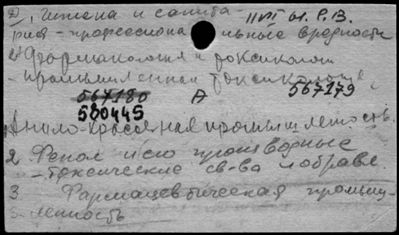 2), Гигиена и санита- IIVI 61. Р. В.
рия - профессиональные вредности
Фармакология и токсикология
- промышленная токсикология,
567180 А 567179
580445
1 Анило-красочная промышленность.
2 Фенол и его производные
- токсические св-ва и обраве
3 Фармацевтическая промыш-
ленность